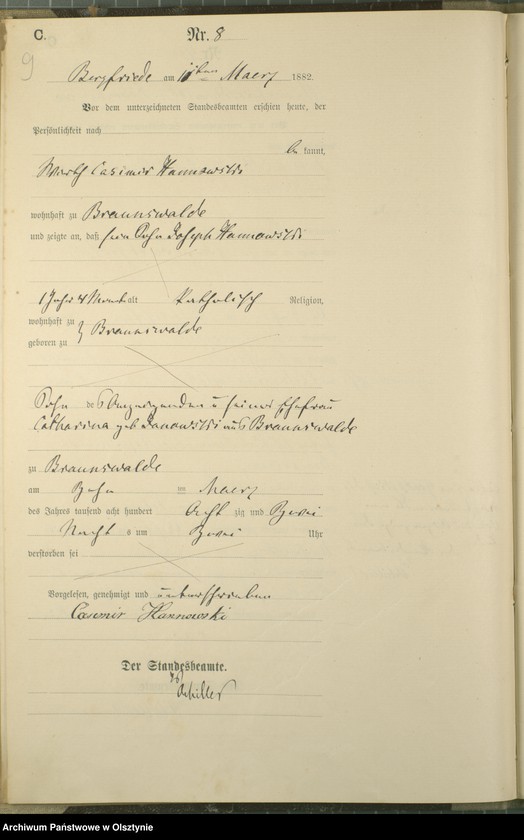 C.
Nr. 8
9
Bergfriede am 11ten Maerz 1882.
Vor dem unterzeichneten Standesbeamten erschien heute, der
Persönlichkeit nach
be kannt,
Wirth Casimir Hannowski
wohnhaft zu Braunswalde
und zeigte an, daß sein Sohn Joseph Hannowski
1 Jahr 4 Monat alt Katholisch Religion,
wohnhaft zu
geboren zu } Braunswalde
Sohn des Anzeigenden u seiner Ehefrau
Catharina geb Janowski aus Braunswalde
zu Braunswalde
am Zehn im Maerz
des Jahres tausend acht hundert Acht zig und Zwei
Nacht s um Zwei Uhr
verstorben sei
Vorgelesen, genehmigt und unterschrieben
Casimir Hannowski
Der Standesbeamte.
Schiller
Archiwum Państwowe w Olsztynie